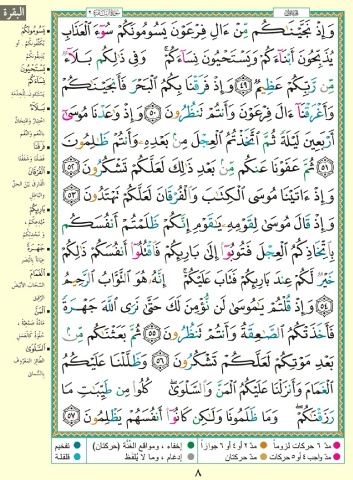 البقرة
وَإِذْ نَجَّيْنَٰكُم مِّنْ ءَالِ فِرْعَوْنَ يَسُومُونَكُمْ سُوٓءَ ٱلْعَذَابِ
يُذَبِّحُونَ أَبْنَآءَكُمْ وَيَسْتَحْيُونَ نِسَآءَكُمْ ۚ وَفِى ذَٰلِكُم بَلَآءٌ
مِّن رَّبِّكُمْ عَظِيمٌ ٤٩ وَإِذْ فَرَقْنَا بِكُمُ ٱلْبَحْرَ فَأَنجَيْنَٰكُمْ
وَأَغْرَقْنَآ ءَالَ فِرْعَوْنَ وَأَنتُمْ تَنظُرُونَ ٥٠ وَإِذْ وَٰعَدْنَا مُوسَىٰٓ
أَرْبَعِينَ لَيْلَةً ثُمَّ ٱتَّخَذْتُمُ ٱلْعِجْلَ مِنۢ بَعْدِهِۦ وَأَنتُمْ ظَٰلِمُونَ
٥١ ثُمَّ عَفَوْنَا عَنكُم مِّنۢ بَعْدِ ذَٰلِكَ لَعَلَّكُمْ تَشْكُرُونَ ٥٢
وَإِذْ ءَاتَيْنَا مُوسَى ٱلْكِتَٰبَ وَٱلْفُرْقَانَ لَعَلَّكُمْ تَهْتَدُونَ ٥٣
وَإِذْ قَالَ مُوسَىٰ لِقَوْمِهِۦ يَٰقَوْمِ إِنَّكُمْ ظَلَمْتُمْ أَنفُسَكُم
بِٱتِّخَاذِكُمُ ٱلْعِجْلَ فَتُوبُوٓا۟ إِلَىٰ بَارِئِكُمْ فَٱقْتُلُوٓا۟ أَنفُسَكُمْ ذَٰلِكُمْ
خَيْرٌ لَّكُمْ عِندَ بَارِئِكُمْ فَتَابَ عَلَيْكُمْ ۚ إِنَّهُۥ هُوَ ٱلتَّوَّابُ ٱلرَّحِيمُ
٥٤ وَإِذْ قُلْتُمْ يَٰمُوسَىٰ لَن نُّؤْمِنَ لَكَ حَتَّىٰ نَرَى ٱللَّهَ جَهْرَةً
فَأَخَذَتْكُمُ ٱلصَّٰعِقَةُ وَأَنتُمْ تَنظُرُونَ ٥٥ ثُمَّ بَعَثْنَٰكُم مِّنۢ
بَعْدِ مَوْتِكُمْ لَعَلَّكُمْ تَشْكُرُونَ ٥٦ وَظَلَّلْنَا عَلَيْكُمُ
ٱلْغَمَامَ وَأَنزَلْنَا عَلَيْكُمُ ٱلْمَنَّ وَٱلسَّلْوَىٰ ۖ كُلُوا۟ مِن طَيِّبَٰتِ مَا
رَزَقْنَٰكُمْ ۖ وَمَا ظَلَمُونَا وَلَٰكِن كَانُوٓا۟ أَنفُسَهُمْ يَظْلِمُونَ ٥٧
يَسُومُونَكُمْ
يَسْتَحْيُونَ
نِسَاءَكُمْ
بَلَاءٌ
فَرَقْنَا
الْفُرْقَانَ
بَارِئِكُمْ
جَهْرَةً
الْغَمَامَ
السحاب الأبيض
الرقيق
الْمَنَّ
السَّلْوَىٰ
الطائر المعروف
بالسماني
مدّ ٦ حركات لزوماً
مدّ ٢ أو ٤ أو ٦ جوازاً
إخفاء، ومواقع الغُنَّة (حركتان)
تفخيم
مدّ واجب ٤ أو ٥ حركات
مدّ حركتان
إدغام، وما لا يُلفظ
قلقلة
٨